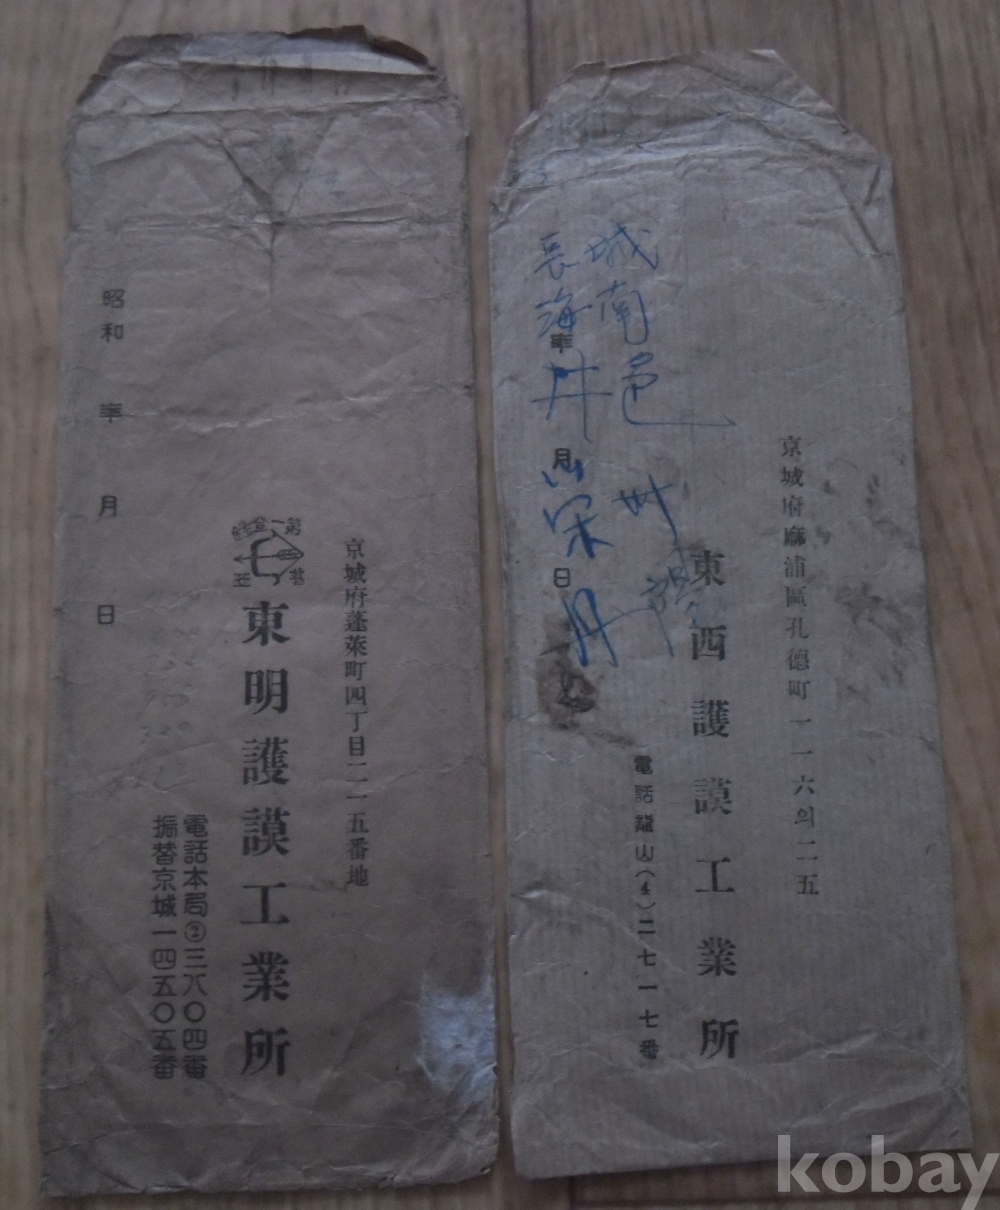 京城府蓬萊町四丁目二一五番地
東明護謨工業所
電話本局③三八〇四番
振替京城一四五〇五番
昭和 年 月 日
京城府麻浦區孔德町一一六의二五
東西護謨工業所
電話龍山(4)二七一七番
年 月 日
城南邑
長海
kobay